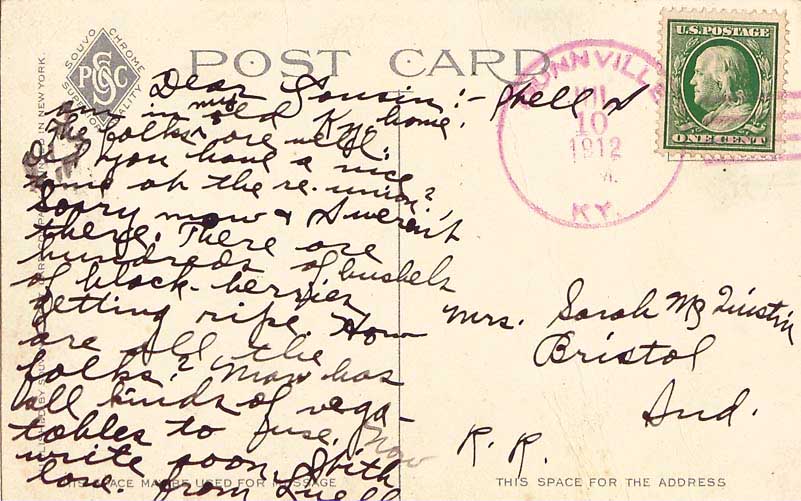 SOUVO CHROME
PCSC
SUPERIOR QUALITY
POST CARD
Dear Cousin:- Well I
am in my old Ky. home.
The folks are well.
Did you have a nice
time at the re-union?
Sorry maw & I weren't
there. There are
hundreds of bushels
of black-berries
getting ripe. How
are all the
folks? Maw has
all kinds of vega-
tables to use. Now
write soon. With
love. From
THIS SPACE MAY BE USED FOR MESSAGE
DUNNVILLE
JUL
10
1912
KY.
U.S. POSTAGE
ONE CENT
Mrs. Sarah
Bristol
Ind.
R. R.
THIS SPACE FOR THE ADDRESS
IN NEW YORK.